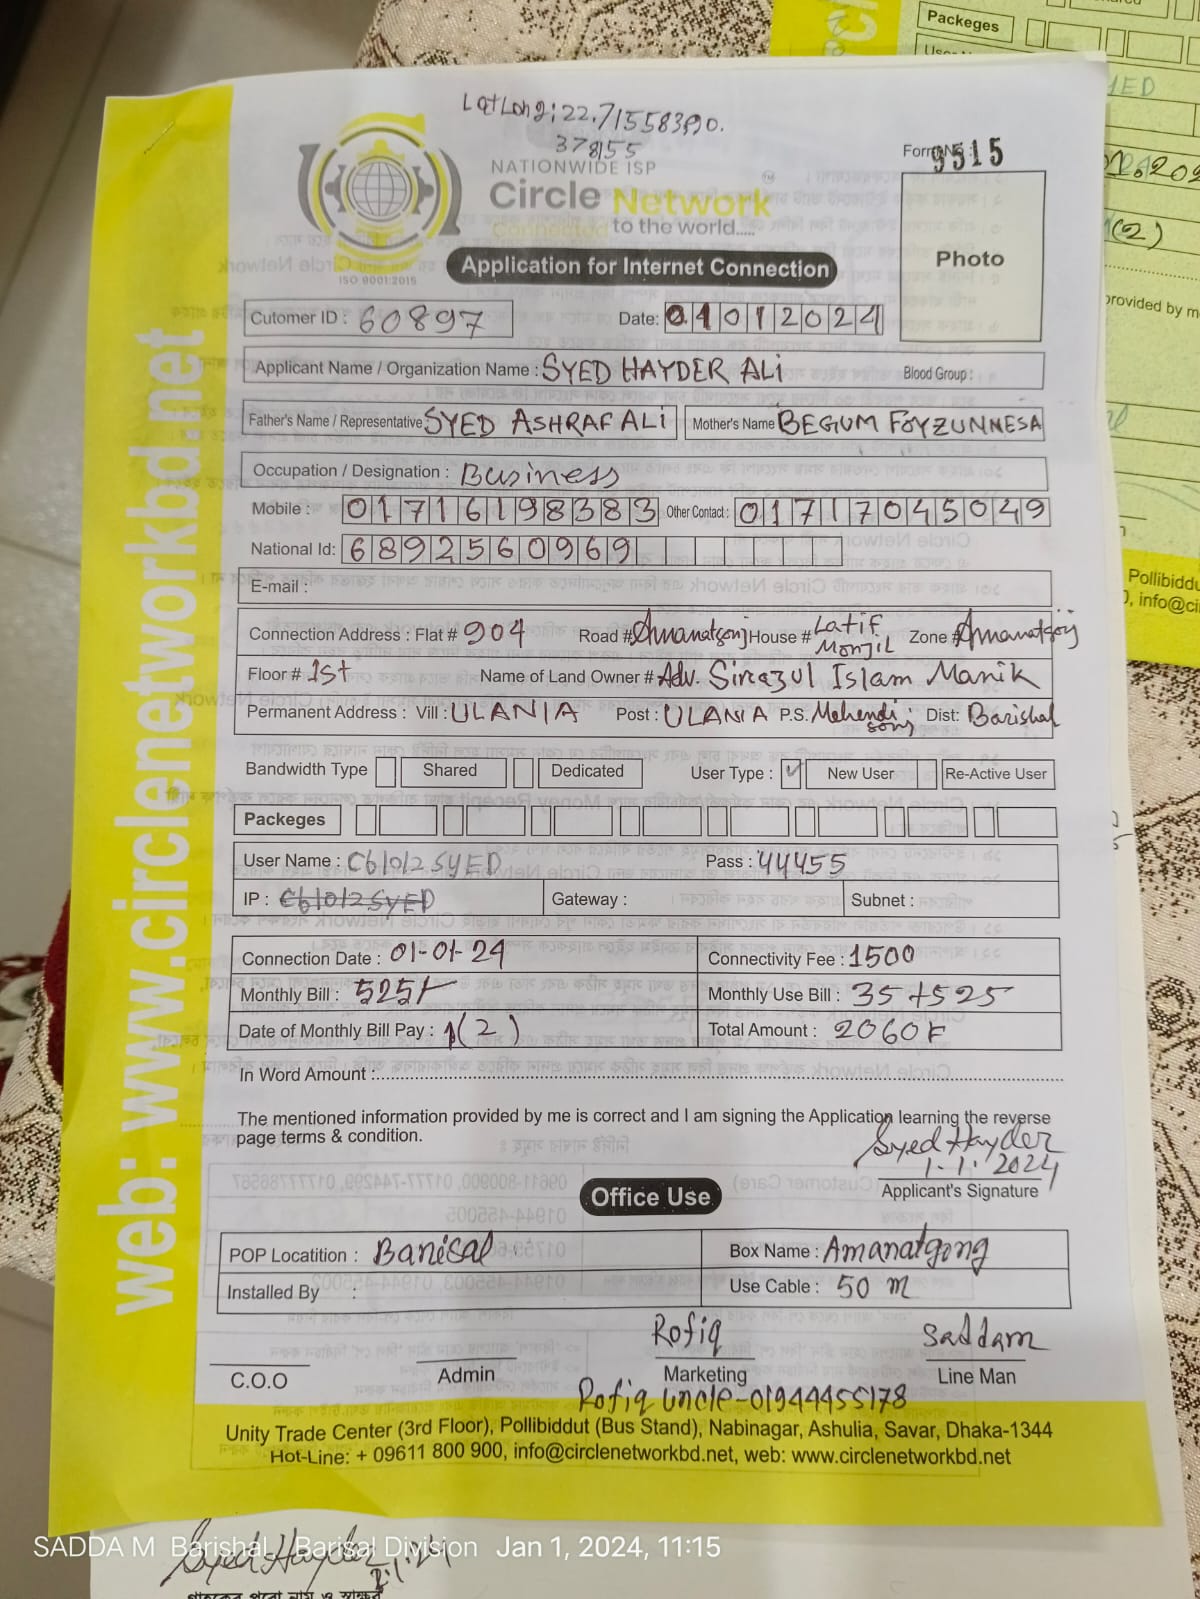 LatLong: 22.715583,90.
378155
Form No : 9515
NATIONWIDE ISP
Circle Network
Connected to the world.....
ISO 9001:2015
Photo
Application for Internet Connection
Cutomer ID : 60897
Date: 01012024
Applicant Name / Organization Name : SYED HAYDER ALi
Blood Group :
Father's Name / Representative SYED ASHRAF ALi
Mother's Name BEGUM FOYZUNNESA
Occupation / Designation : Business
Mobile : 01716198383 Other Contact : 01717045049
National Id: 6892560969
E-mail :
Connection Address : Flat # 904 Road # Amanatgonj House # Latif Monjil Zone # Amanatgonj
Floor # 1st Name of Land Owner # Adv. Sirazul Islam Manik
Permanent Address : Vill : ULANIA Post : ULANIA P.S. Mehendigonj Dist: Barishal
Bandwidth Type Shared Dedicated User Type : ✓ New User Re-Active User
Packeges
User Name : C61012SYED Pass : 44455
IP : C61012SYED Gateway : Subnet :
Connection Date : 01-01-24 Connectivity Fee : 1500
Monthly Bill : 525/- Monthly Use Bill : 35+525
Date of Monthly Bill Pay : 1(2) Total Amount : 2060
In Word Amount :
The mentioned information provided by me is correct and I am signing the Application learning the reverse
page terms & condition.
Syed Hayder
1.1.2024
Applicant's Signature
Office Use
POP Locatition : Barisal Box Name : Amanatgong
Installed By : Use Cable : 50 m
Rofiq Saddam
C.O.O Admin Marketing Line Man
Rofiq uncle-01944455178
Unity Trade Center (3rd Floor), Pollibiddut (Bus Stand), Nabinagar, Ashulia, Savar, Dhaka-1344
Hot-Line: + 09611 800 900, info@circlenetworkbd.net, web: www.circlenetworkbd.net
web: www.circlenetworkbd.net
Packeges
(2)
provided by m
Pollibiddu
, info@ci
SADDA M Barishal , Barisal Division Jan 1, 2024, 11:15
Syed Hayder